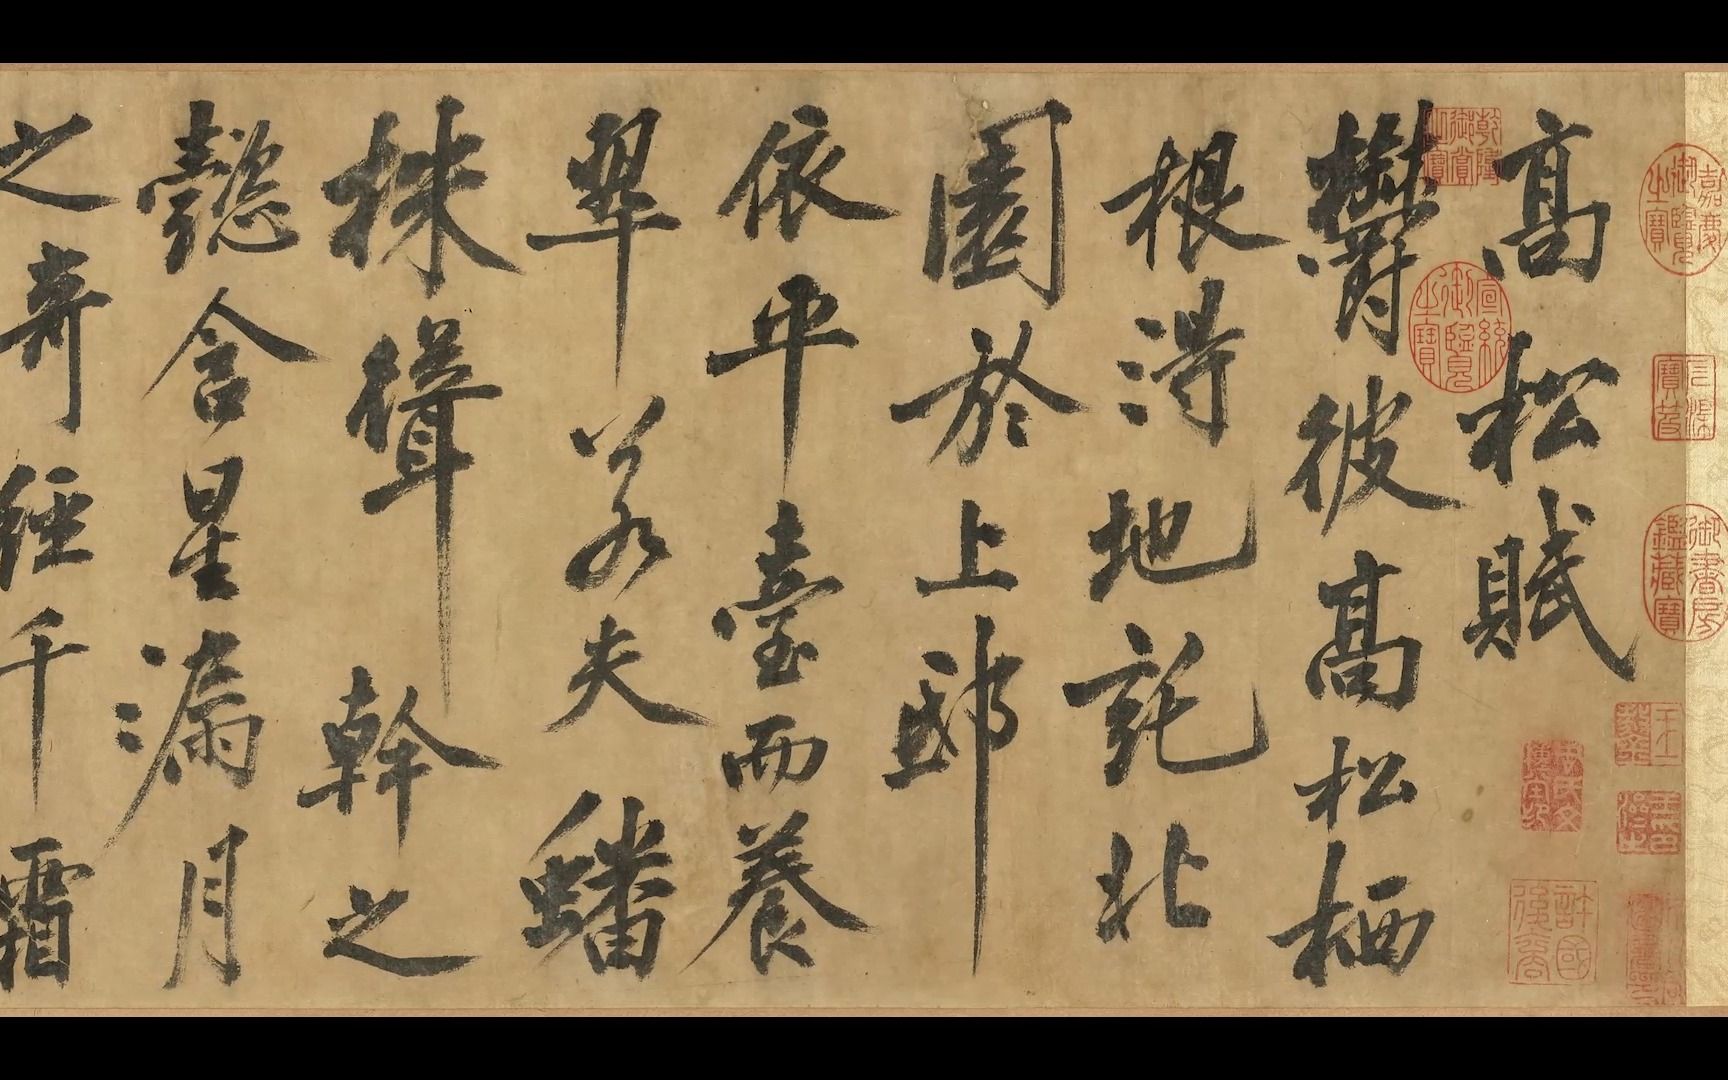 嘉慶御覽之寶
石渠寶笈
御書房鑑藏寶
高松賦
許國後裔
乾隆御賞之寶
宣統御覽之寶
鬱彼高松栖
根得地託北
園於上邸
依平臺而養
翠若夫蟠
株聳幹之
懿含星漏月
之奇經千霜